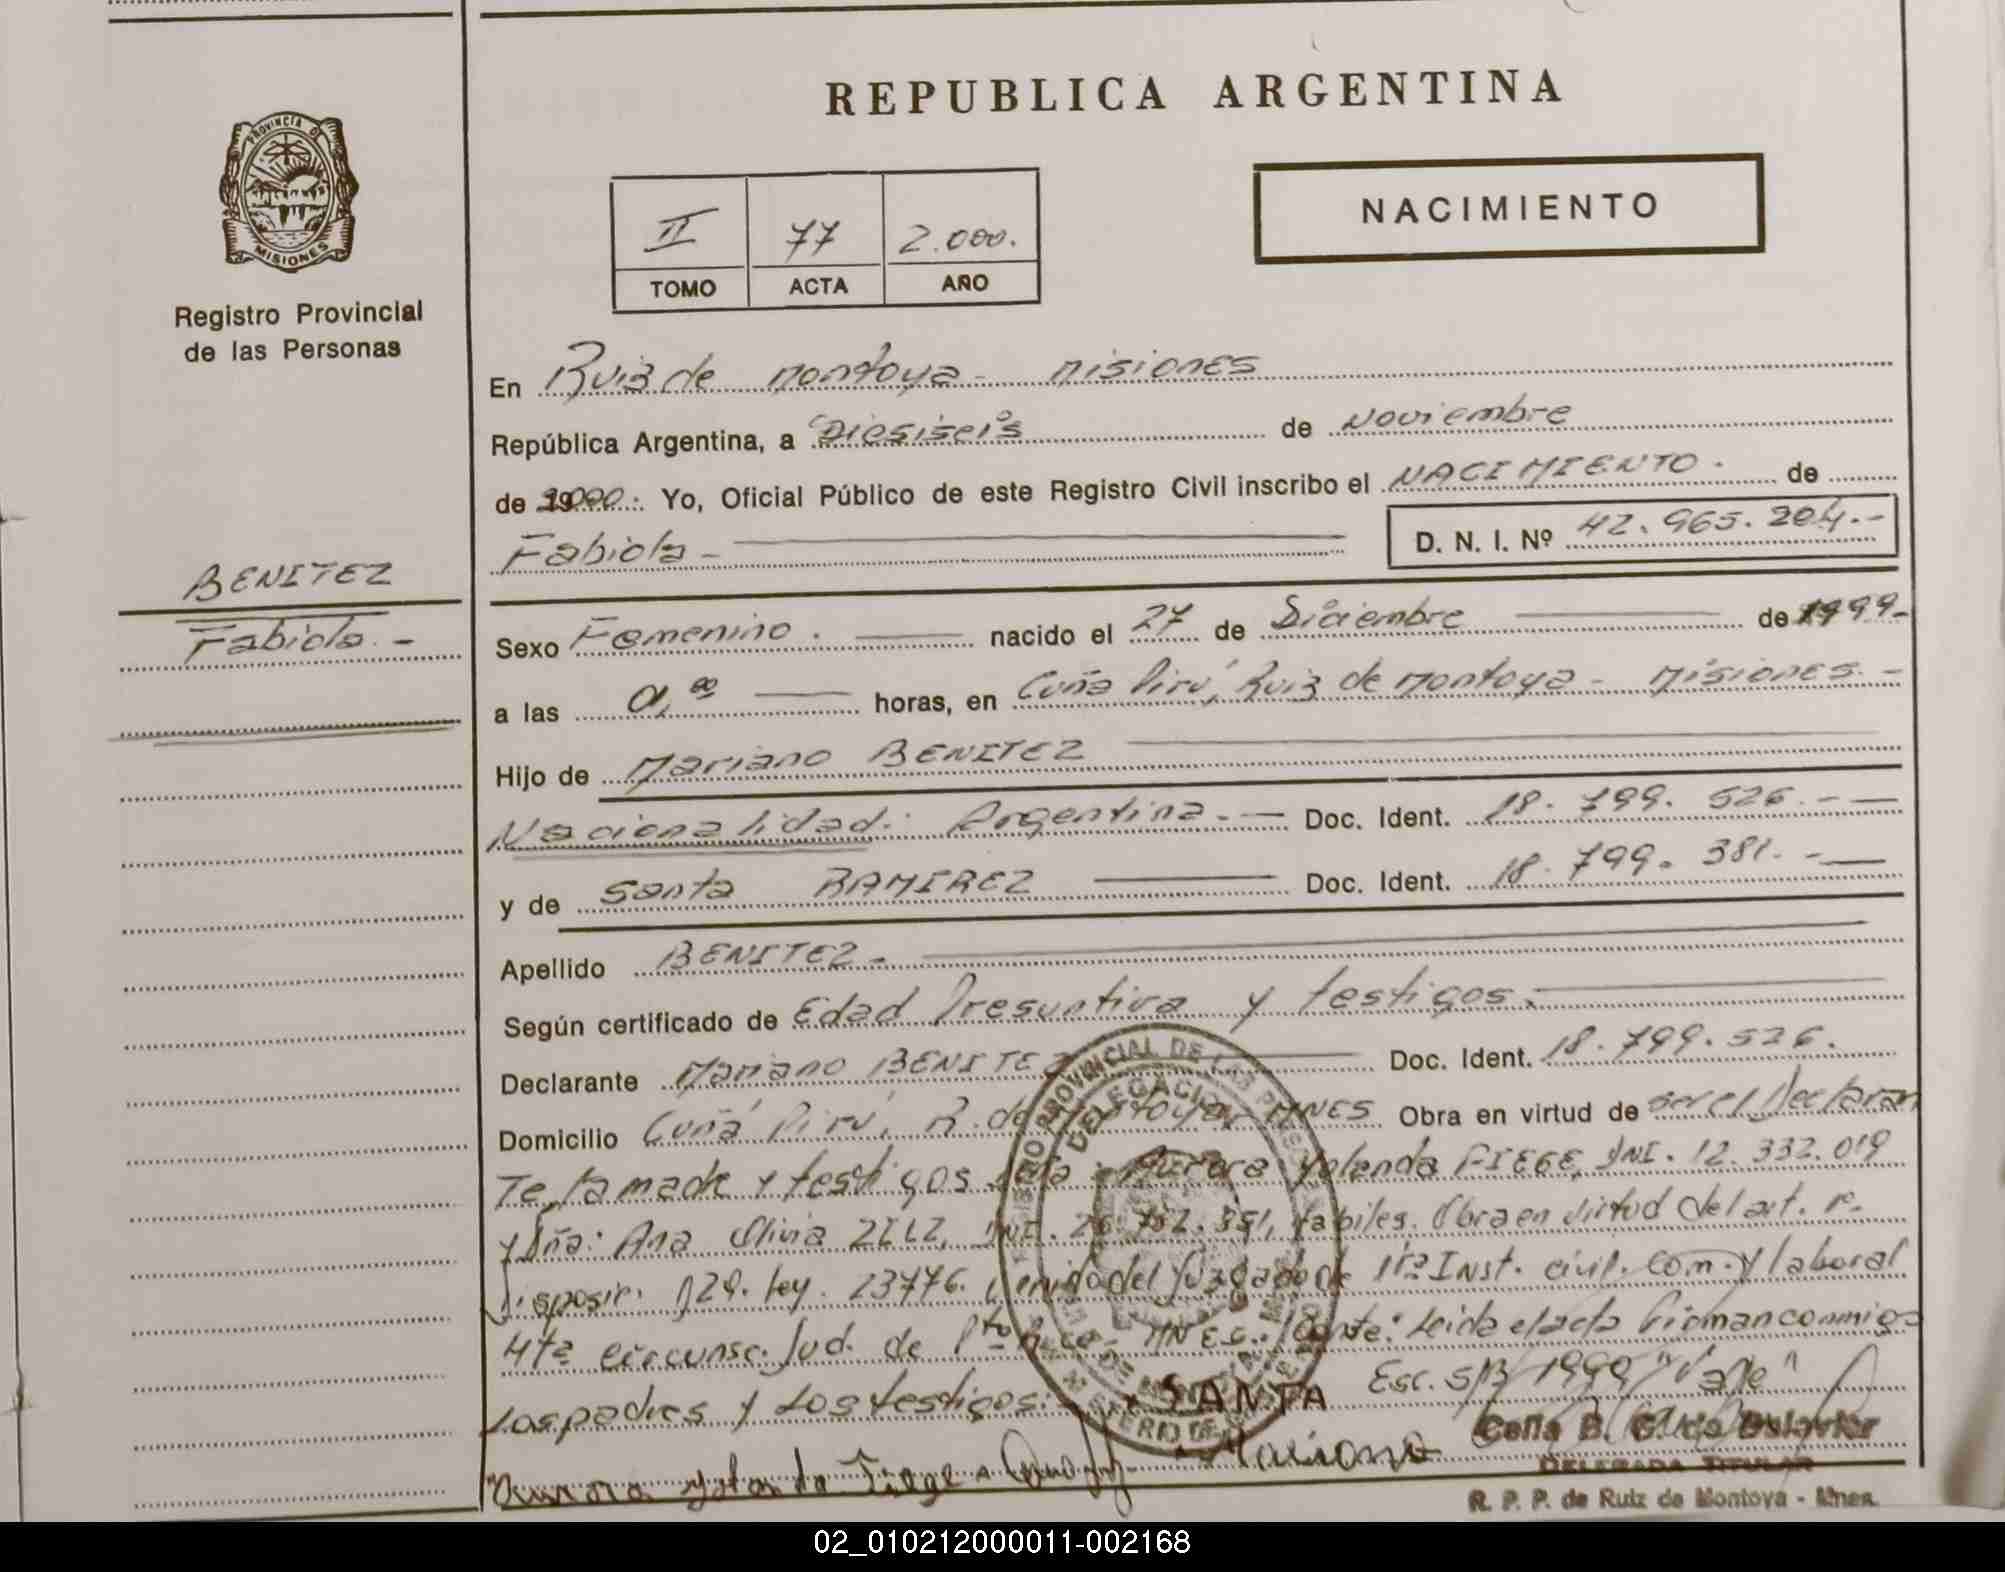 REPUBLICA ARGENTINA
PROVINCIA D
MISIONES
Registro Provincial
de las Personas
II 77 2.000.
TOMO ACTA AÑO
NACIMIENTO
En Ruiz de Montoya - Misiones
República Argentina, a Diesiseis de Noviembre
de 2000. Yo, Oficial Público de este Registro Civil inscribo el NACIMIENTO. de
Fabiola - D. N. I. Nº 42.965.204.-
BENITEZ
Fabiola. -
Sexo Femenino. nacido el 27 de Diciembre de 1999-
a las horas, en Cuña Pirú, Ruiz de Montoya - Misiones. -
Hijo de Mariano BENITEZ
Nacionalidad: Argentina. - Doc. Ident. 18. 799. 526. -
y de Santa RAMIREZ Doc. Ident. 18. 799. 381. -
Apellido BENITEZ -
Según certificado de Edad Presuntiva y testigos.
Declarante Mariano BENITEZ Doc. Ident. 18.799.526.
Domicilio Cuñá Pirú, R. de Montoya, MNES Obra en virtud de ser el Declaran
te, la madre y testigos Yolanda FIEGE, DNI. 12.332.019
y Sña: Ana Olivia ZILZ, DNI. 351, habiles. Obra en virtud del art. 1º
129. Ley. 23776. del Juzgado de 1ra Inst. civil. Com. y laboral
4ta circunsc. Jud. de Pto Rico - MNES. Leida el acta firman conmigo
Los padres y Los testigos: Esc. S/B/ 1999 "Vale"
SANTA
Mariano
Celia B. G. de
DELEGADA TITULAR
R. P. P. de Ruiz de Montoya - Mnes.
02_010212000011-002168